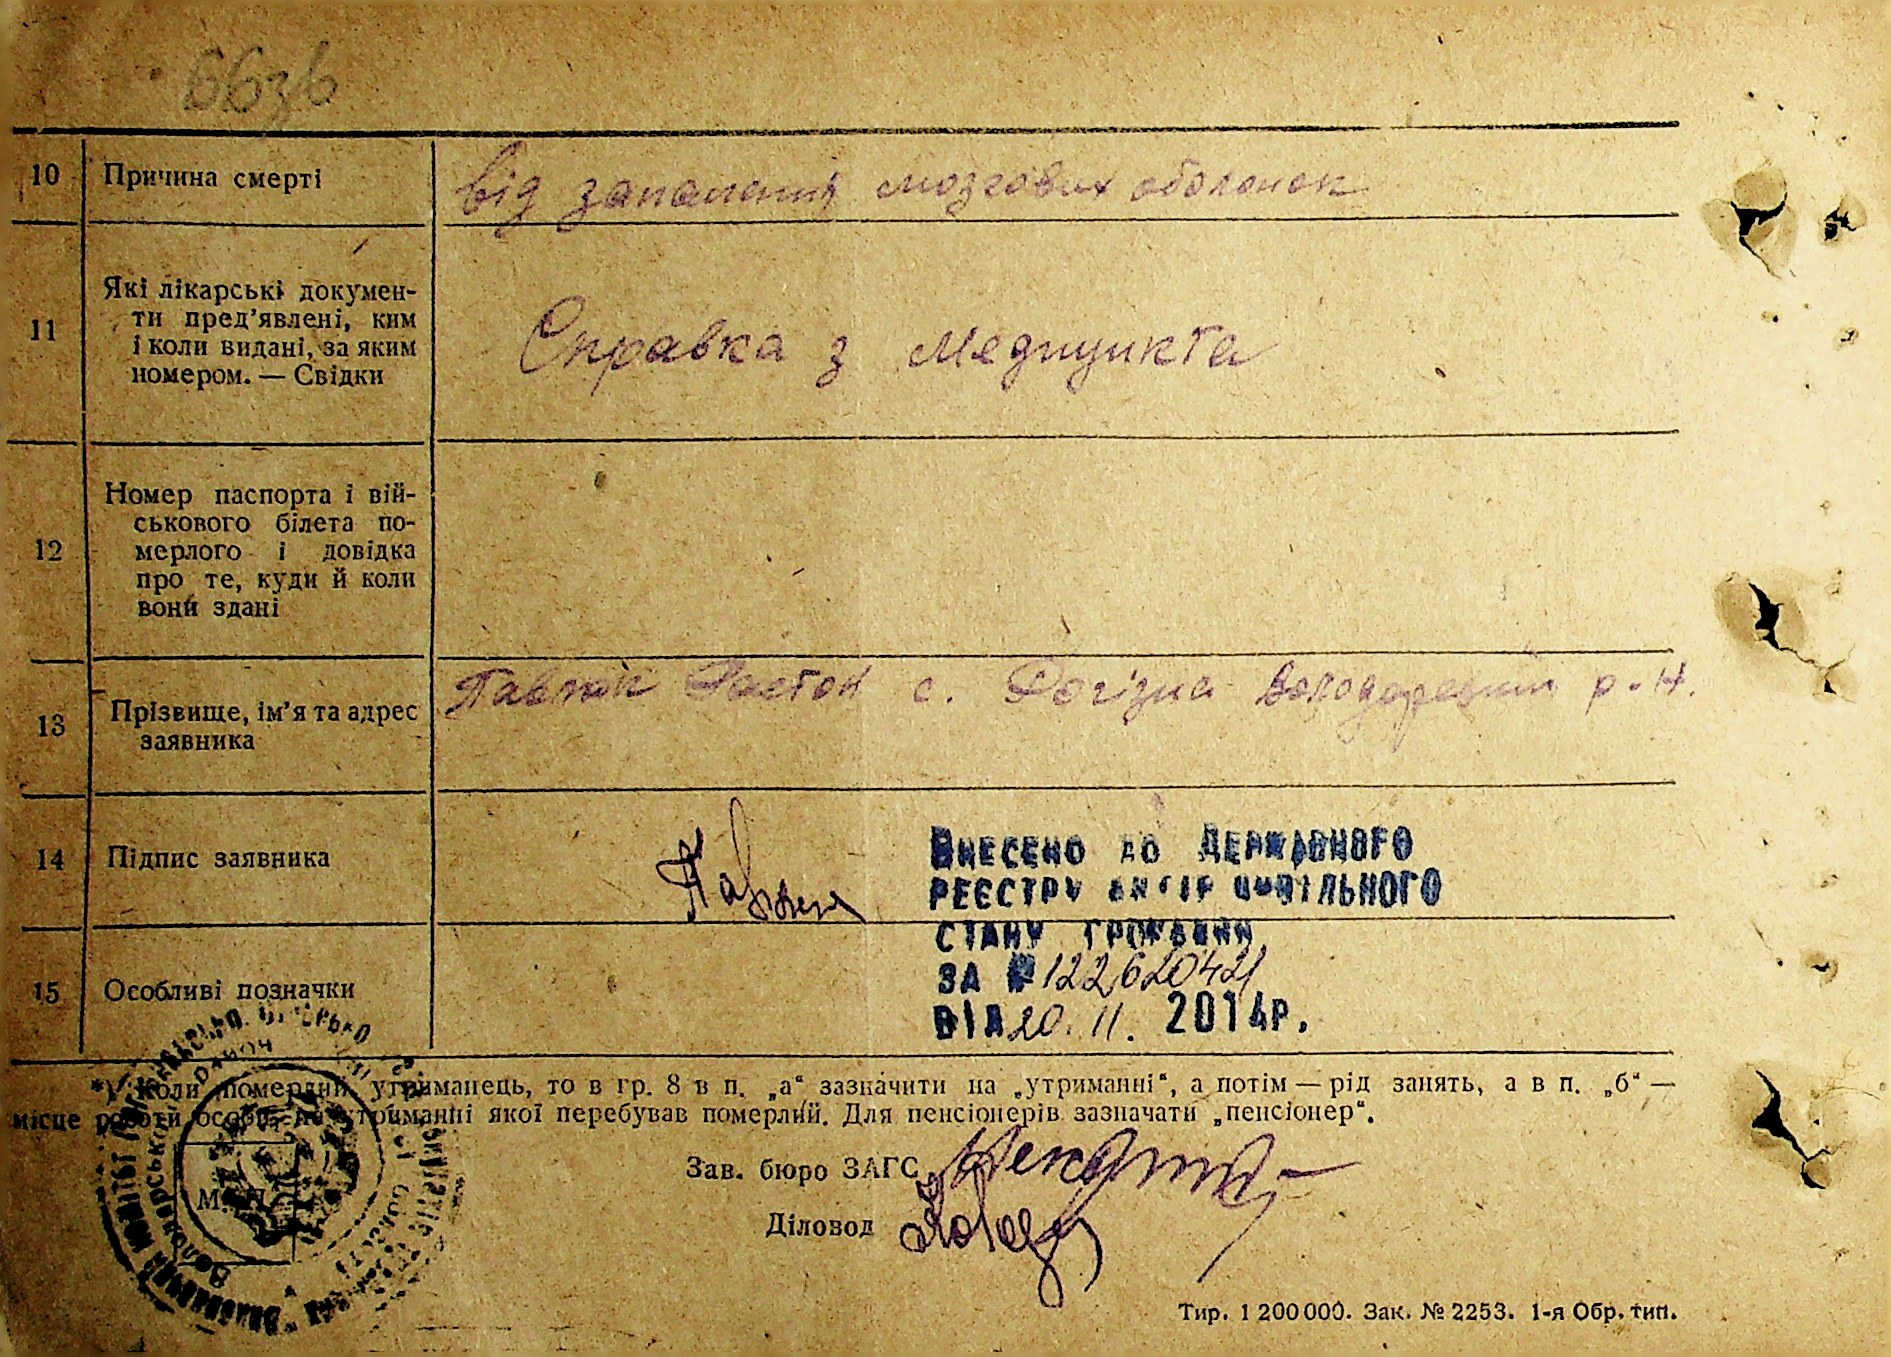 663б
10 Причина смерті
від запалення мозгових оболонок
11 Які лікарські докумен-
ти пред'явлені, ким
і коли видані, за яким
номером. — Свідки
Справка з Медпункта
12 Номер паспорта і вій-
ськового білета по-
мерлого і довідка
про те, куди й коли
вони здані
13 Прізвище, ім'я та адрес
заявника
Павлюк с. Рогізна Володарський р-н.
14 Підпис заявника
ВНЕСЕНО ДО ДЕРЖАВНОГО
РЕЄСТРУ АКТІВ ЦИВІЛЬНОГО
СТАНУ ГРОМАДЯН
ЗА № 122620421
ВІД 20. 11. 2014р.
15 Особливі позначки
*) Коли померлий утриманець, то в гр. 8 в п. „а“ зазначити на „утриманні“, а потім — рід занять, а в п. „б“ —
місце роботи особи, на утриманні якої перебував померлий. Для пенсіонерів зазначати „пенсіонер“.
Зав. бюро ЗАГС
Діловод
М. П.
Тир. 1 200 000. Зак. № 2253. 1-я Обр. тип.